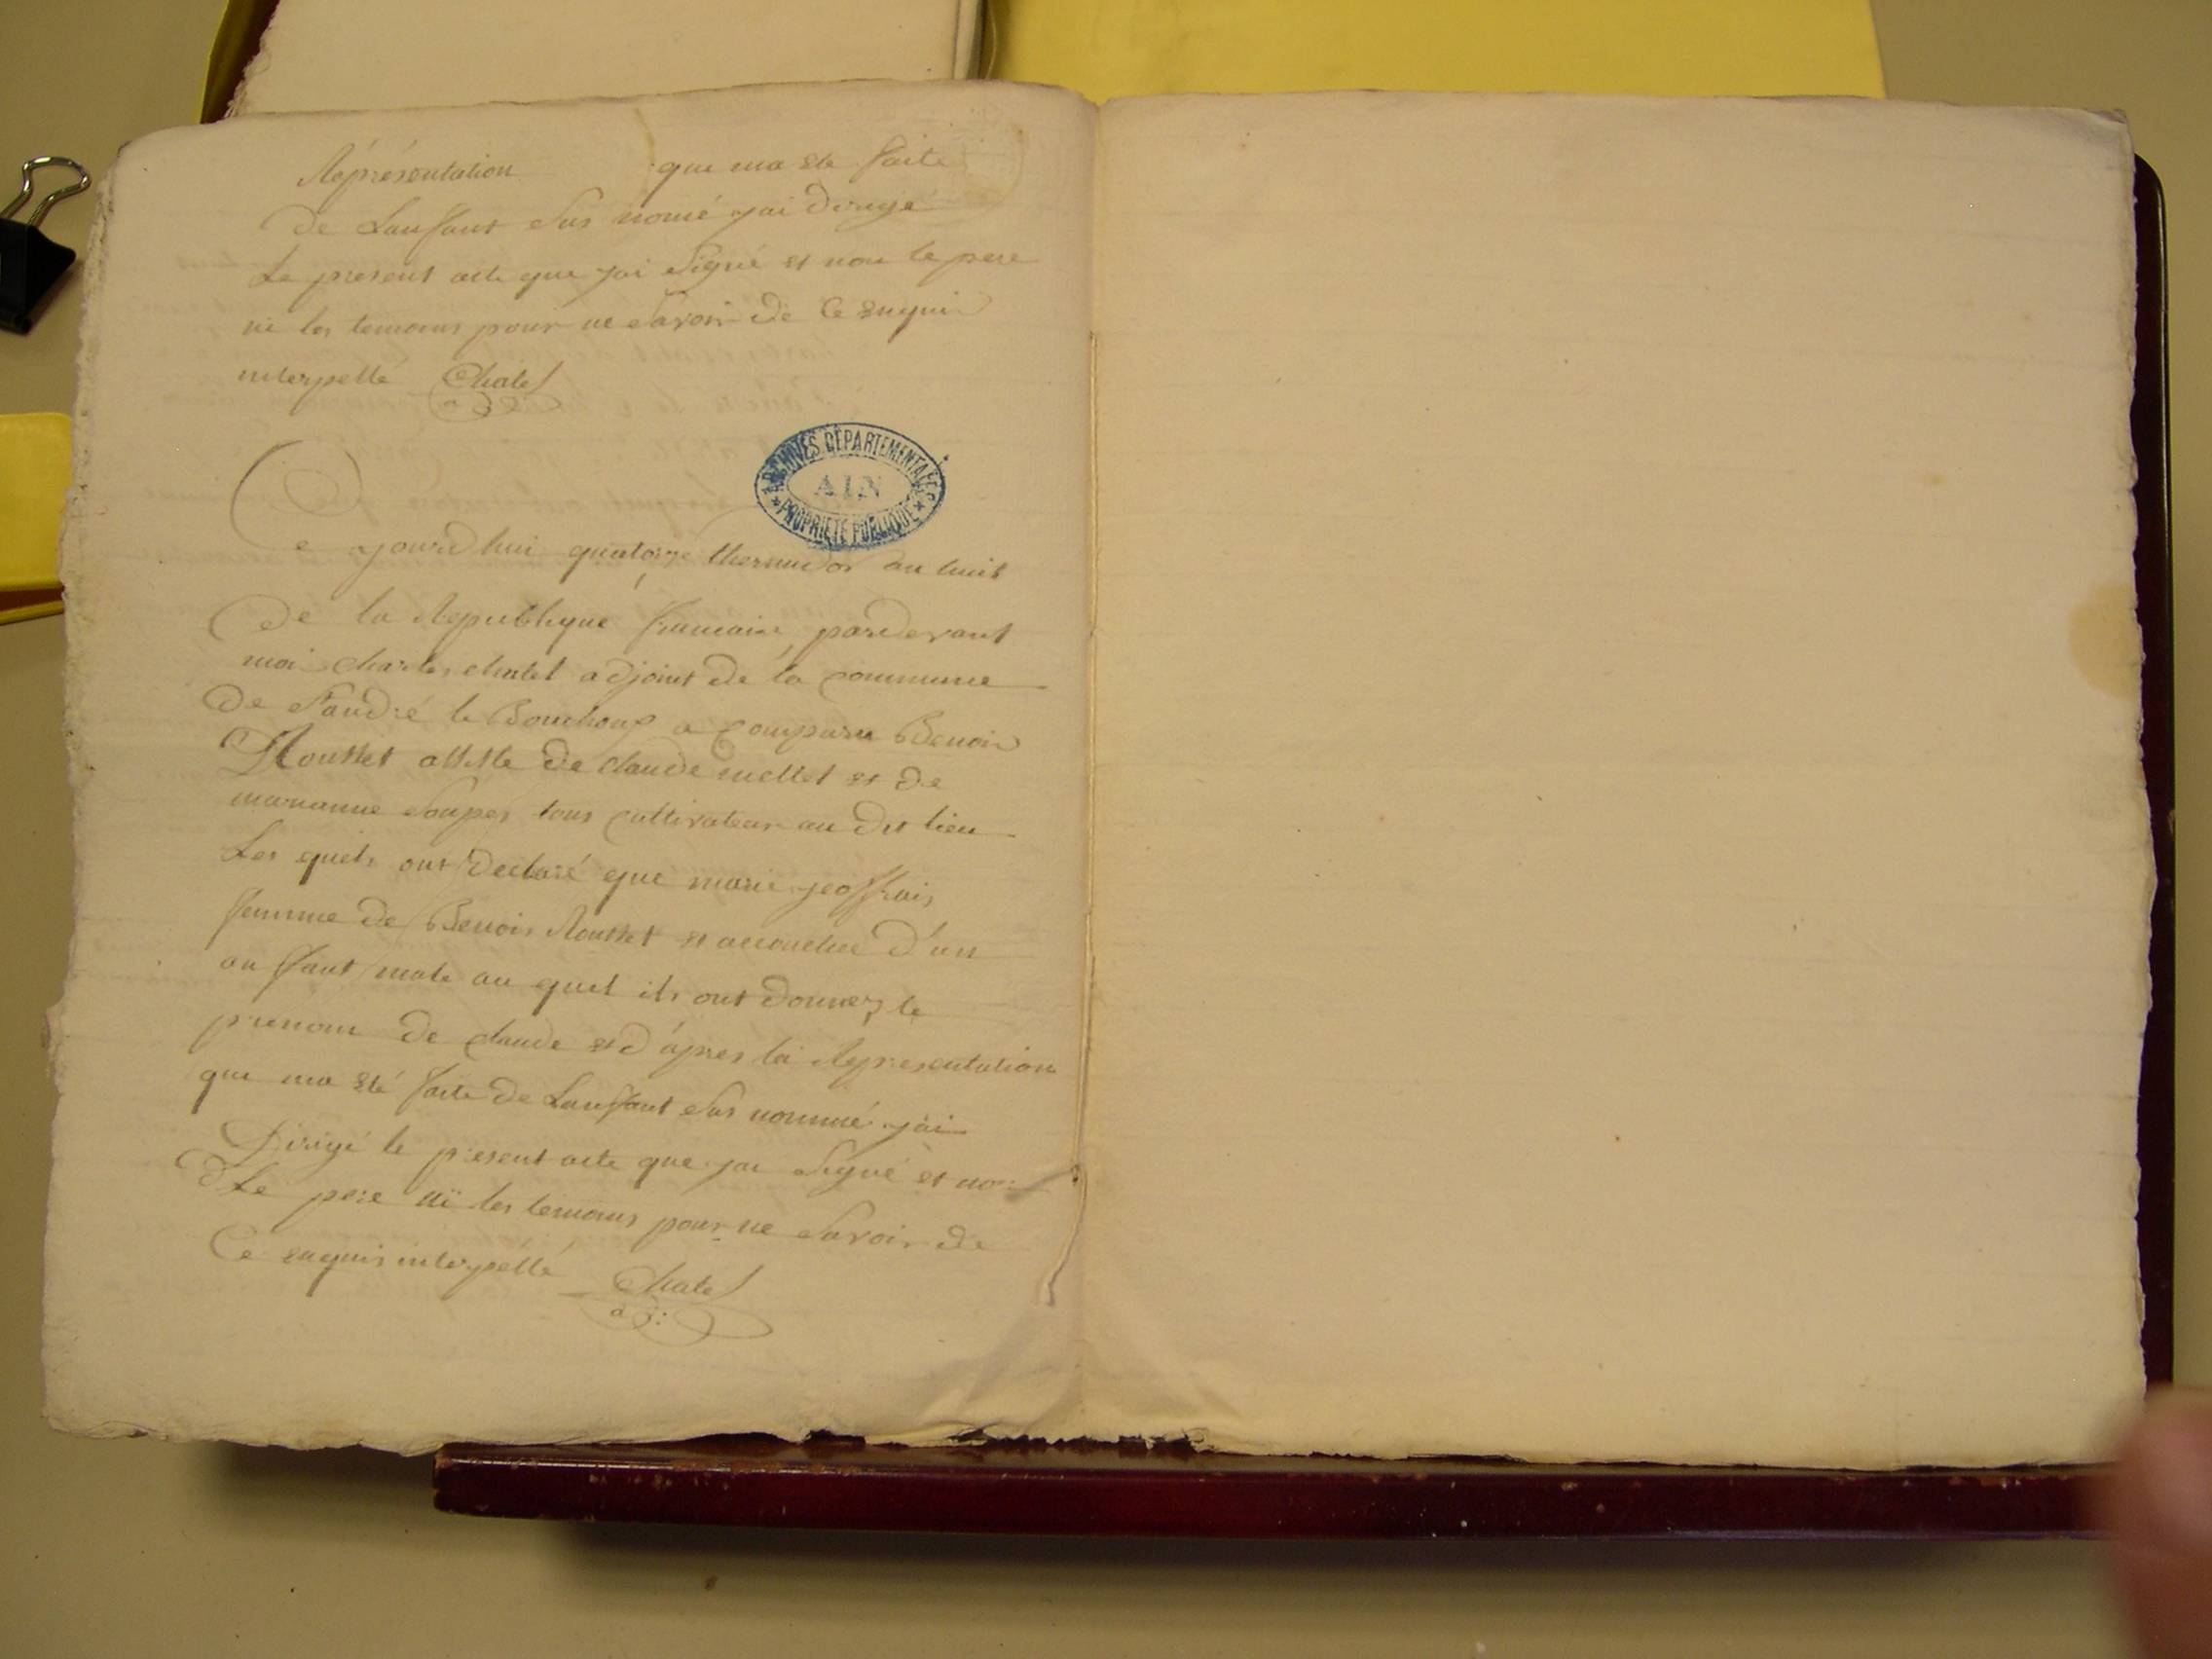 Représentation que ma ete faite
de Lanfant sus nomé jai dirigé
Le present acte que jai signé et non le pere
ni les temoins pour ne savoir de ce enquis
interpellé Chatel
ARCHIVES DÉPARTEMENTALES
AIN
PROPRIÉTÉ PUBLIQUE
Ce ajourdhui quatorze thermidor an huit
de la Republique francaise, pardevant
moi charles chatel adjoint de la commune
de St andré le Bouchoux a comparu Benoit
Rousset assiste de claude mellet et de
marianne Soupes tous cultivateur au dit lieu
Les quels ont declaré que marie geoffrais
femme de Benois Rousset et accouchee d'un
an fant male au quel ils ont donnez le
prenom de claude et d'apres la Representation
que ma eté faite de Lanfant sus nommé jai
dirigé le present acte que jai signé et non
Le pere ni les temoins pour ne savoir de
Ce enquis interpellé Chatel
adj: